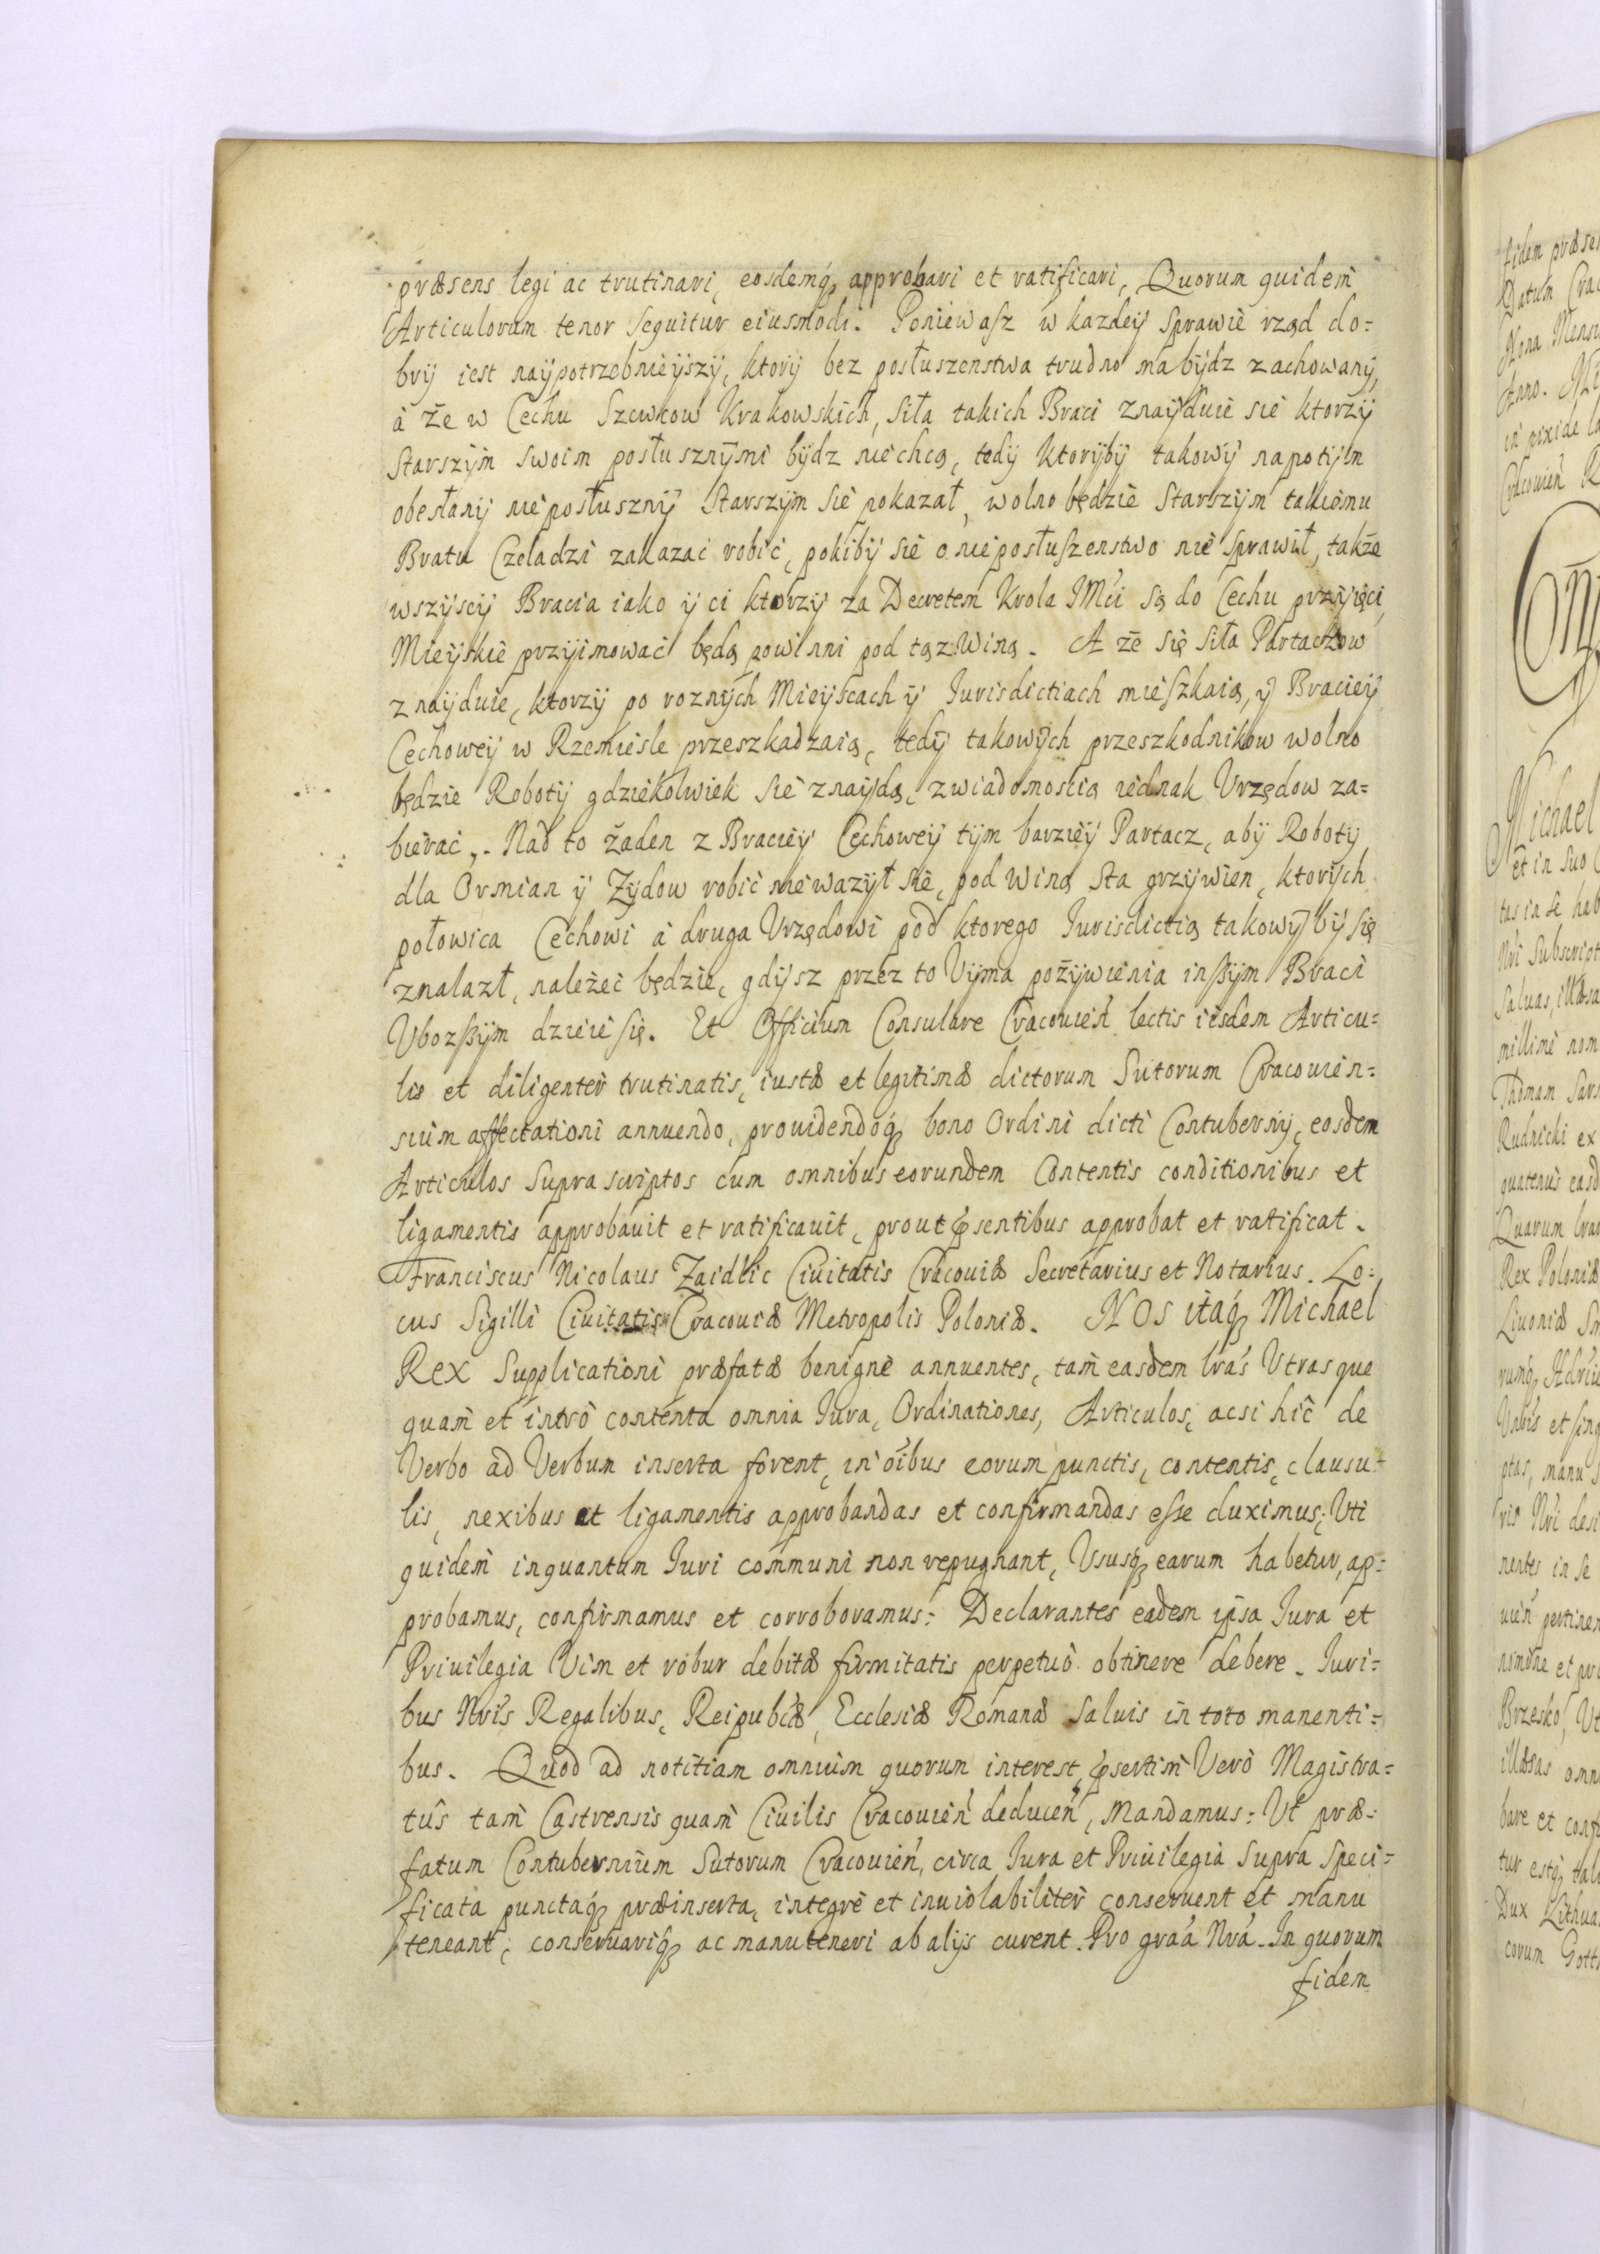 præsens legi ac trutinari, eosdemq́ approbari et ratificari, Quorum quidem
Articulorum tenor sequitur eiusmodi. Poniewasz w kazdey sprawie rząd do=
bry iest naypotrzebnieyszy, ktory bez posłuszenstwa trudno ma bydz zachowany,
à że w Cechu Szewcow Krakowskich, siła takich Braci znayduie sie ktorzy
Starszym swoim posłusznymi bydz niechcą, tedy ktoryby takowy napotym
obesłany nieposłuszny Starszym sie pokazał, wolno będzie Starszym takiemu
Bratu Czeladzi zakazać robić, pokiby sie o nieposłuszenstwo nie sprawił, także
wszyscy Bracia iako y ci ktorzy za Decretem Krola JMći są do Cechu przyięci
Mieyskie przyimować będą powinni pod tąz Winą. A że się siła Partaczow
znayduie, ktorzy po roznych Mieyscach y Jurisdictiach mieszkaią, y Braciey
Cechowey w Rzemieśle przeszkadzaią, tedy takowych przeszkodnikow wolno
będzie Roboty gdziekolwiek sie znaydą, z wiadomoscią iednak Vrzędow za=
bierać,. Nad to żaden z Braciey Cechowey tym barziey Partacz, aby Roboty
dla Ormian y Zydow robić nieważył sie, pod Winą Sta grzywien, ktorych
połowica Cechowi à druga Vrzędowi pod ktorego Jurisdictią takowy by się
znalazł, należeć będzie, gdysz przez to Vyma pożywienia inszym Braci
Vboższym dzieie się. Et Officium Consulare Cracouien lectis iisdem Articu=
lis et diligenter trutinatis, iustæ et legitimæ dictorum Sutorum Cracouien=
sium affectationi annuendo, prouidendoq́ bono Ordini dicti Contubernÿ, eosdem
Articulos supra scriptos cum omnibus eorundem Contentis conditionibus et
ligamentis approbauit et ratificauit, prout p̃sentibus approbat et ratificat.
Franciscus Nicolaus Zaidlic Ciuitatis Cracouiæ Secretarius et Notarius. Lo=
cus Sigilli Ciuitatis Cracouiæ Metropolis Poloniæ. NOS itaq́ Michael
REX Supplicationi præfatæ benignè annuentes, tam easdem lrás Vtrasque
quam et intrò contenta omnia Jura, Ordinationes, Articulos, acsi hîc de
Verbo ad Verbum inserta forent, in oíbus eorum punctis, contentis, clausu=
lis, nexibus et ligamentis approbandas et confirmandas esse duximus; Vti
quidem inquantum Juri communi non repugnant, Vsusq́ earum habetur, ap=
probamus, confirmamus et corroboramus: Declarantes eadem ipsa Jura et
Priuilegia Vim et robur debitæ firmitatis perpetuò obtinere debere. Juri=
bus Nrís Regalibus, Reipubĉæ, Ecclesiæ Romanæ saluis in toto manenti=
bus. Quod ad notitiam omnium quorum interest, p̃sertim Verò Magistra=
tûs tam Castrensis quam Ciuilis Cracouień deducen̄, Mandamus: Vt præ=
fatum Contubernium Sutorum Cracouień, circa Jura et Priuilegia supra speci=
ficata punctaq́ præinserta, integrè et inuiolabiliter conseruent et manu
teneant, conseruariq́ ac manuteneri ab alijs curent. Pro graá Nrá. In quorum
fidem